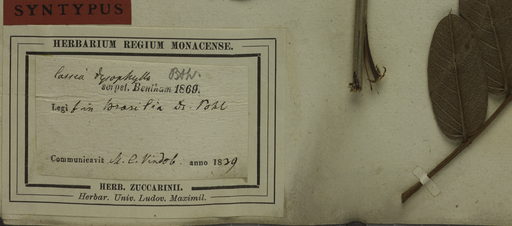 SYNTYPUS
HERBARIUM REGIUM MONACENSE.
Cassia dysophylla Bth.
scrpsi. Bentham 1860.
Legit in Brasilia Dr. Pohl
Communicavit M. C. Vindob. anno 1839
HERB. ZUCCARINII.
Herbar. Univ. Ludov. Maximil.